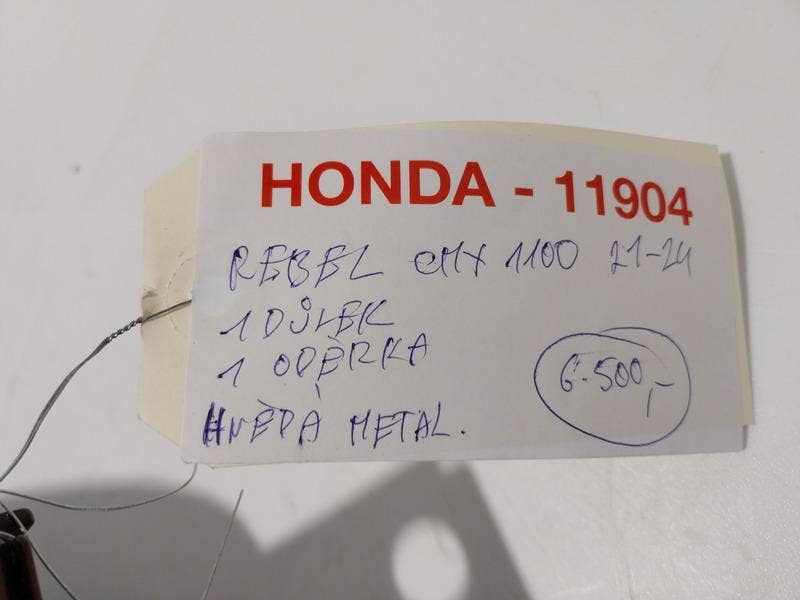 HONDA - 11904
REBEL CMX 1100 21-24
1 DŮLEK
1 ODĚRKA
6.500,-
HNĚDÁ METAL.